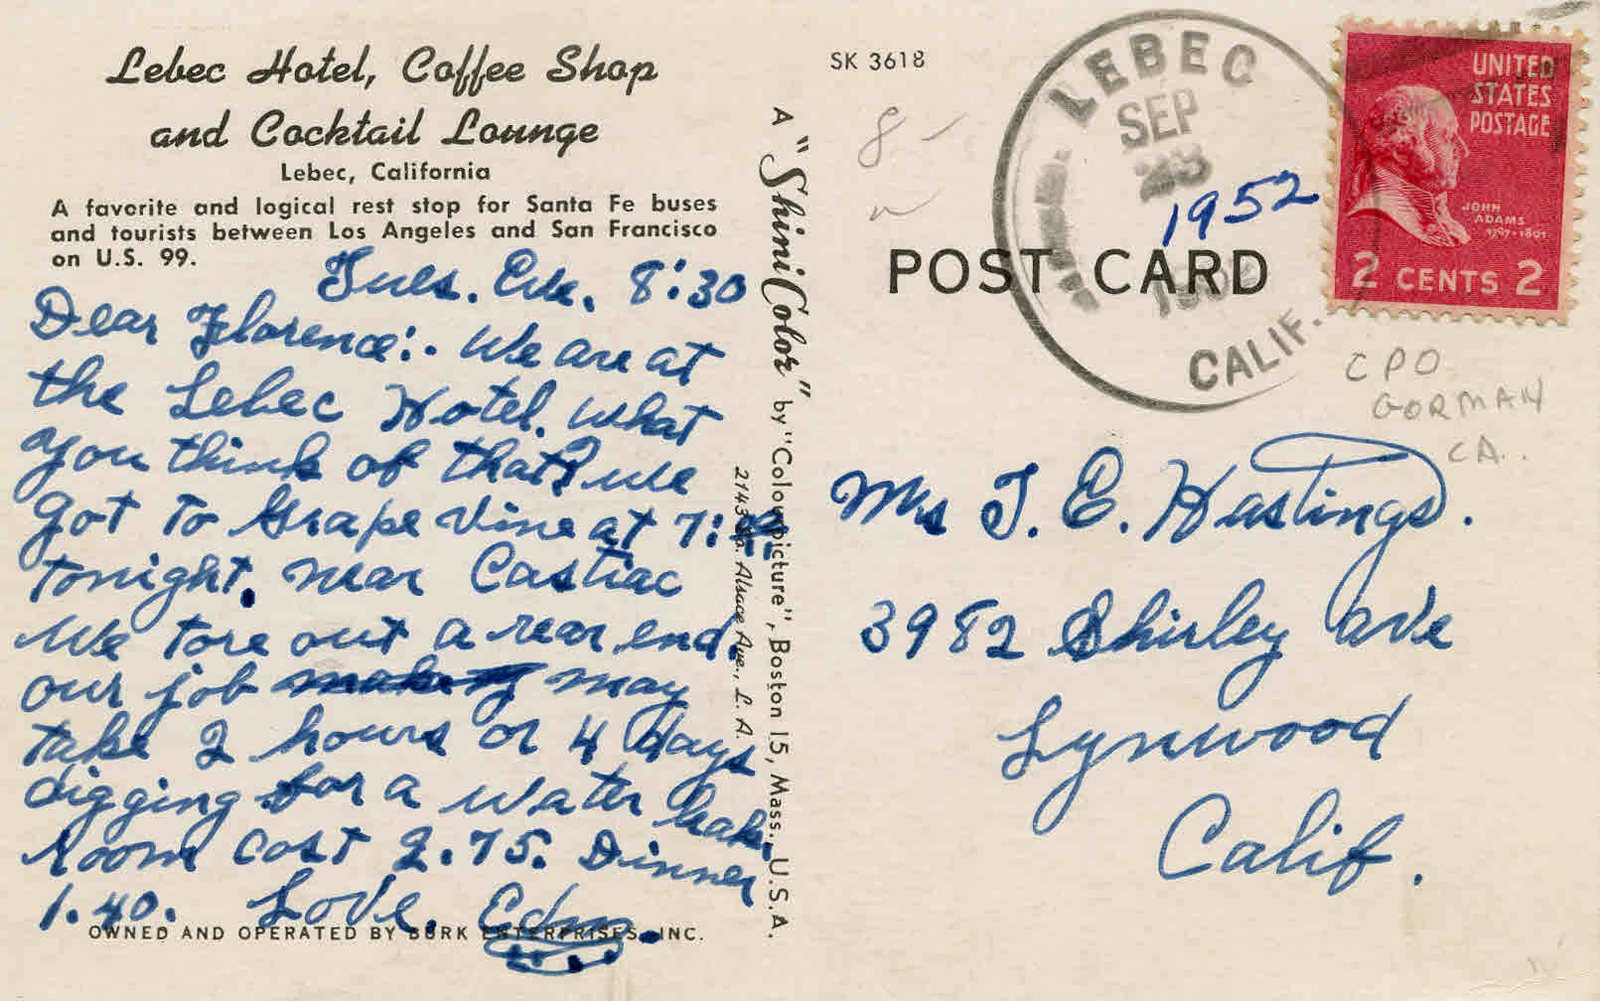 Lebec Hotel, Coffee Shop
and Cocktail Lounge
Lebec, California
A favorite and logical rest stop for Santa Fe buses
and tourists between Los Angeles and San Francisco
on U.S. 99.
Tues. Eve. 8:30
Dear Florence:. We are at
the Lebec Hotel. What
you think of that? We
got to Grape Vine at 7:
tonight. near Castiac
We tore out a rear end.
our job may
take 2 hours or 4 days
digging for a water leak.
Room cost 2.75. Dinner
1.40. Love.
OWNED AND OPERATED BY BURK ENTERPRISES, INC.
A "ShiniColor" by "Colourpicture", Boston 15, Mass., U.S.A.
2143 So. Alsace Ave., L. A.
SK 3618
8 -
LEBEC
SEP
23
1952
CALIF.
UNITED
STATES
POSTAGE
JOHN
ADAMS
1797-1801
2 CENTS 2
POST CARD
CPO
GORMAN
CA.
Mrs J. E. Hastings.
3982 Shirley Ave
Lynwood
Calif.